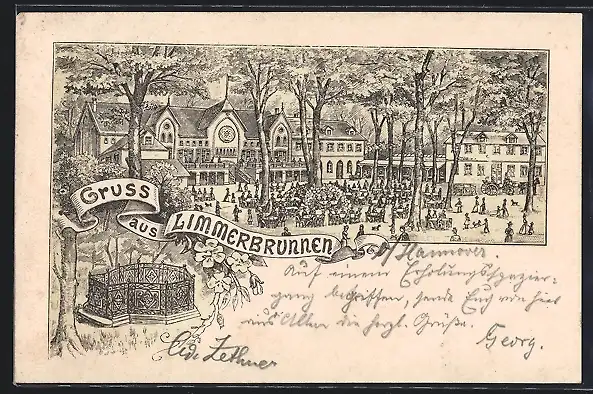 Gruss
aus
LIMMERBRUNNEN
b/ Hannover
Auf einem Erholungsspazier-
gang begriffen, sende Euch von hier
aus Allen die herzl. Grüße.
Georg.